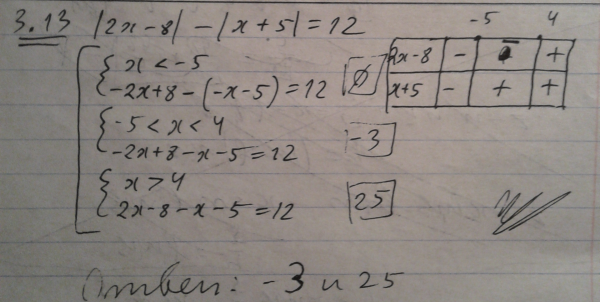 3.13 |2x-8| - |x+5| = 12
-5 4
2x-8 - - +
x+5 - + +
{ x < -5
-2x+8-(-x-5) = 12 ∅
{ -5 < x < 4
-2x+8-x-5 = 12 -3
{ x > 4
2x-8-x-5 = 12 25
Ответ: -3 и 25